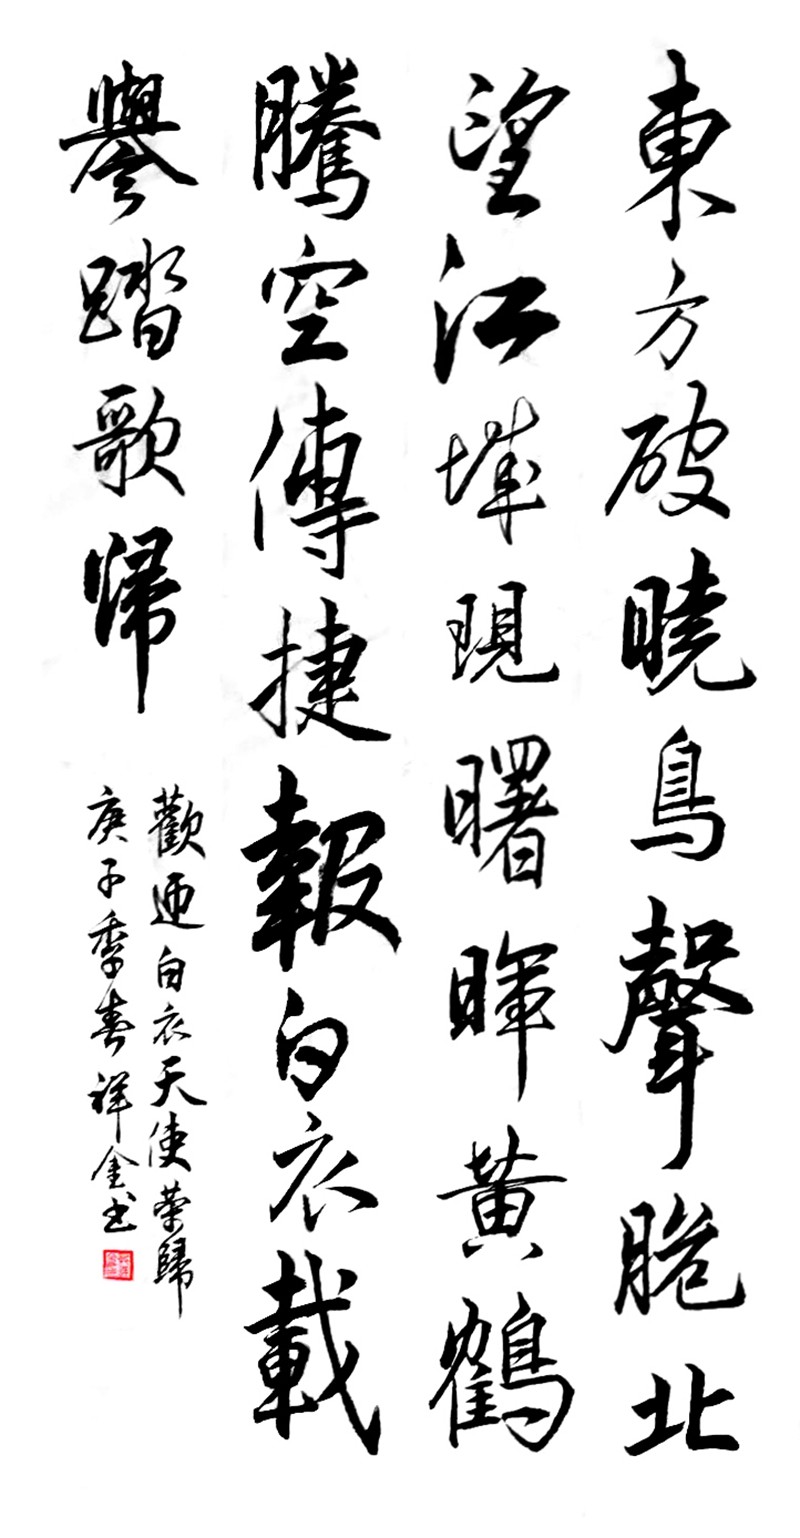 東方破曉鳥聲脆北
望江城現曙暉黃鶴
騰空傳捷報白衣載
譽踏歌歸
歡迎白衣天使榮歸
庚子季春祥金書